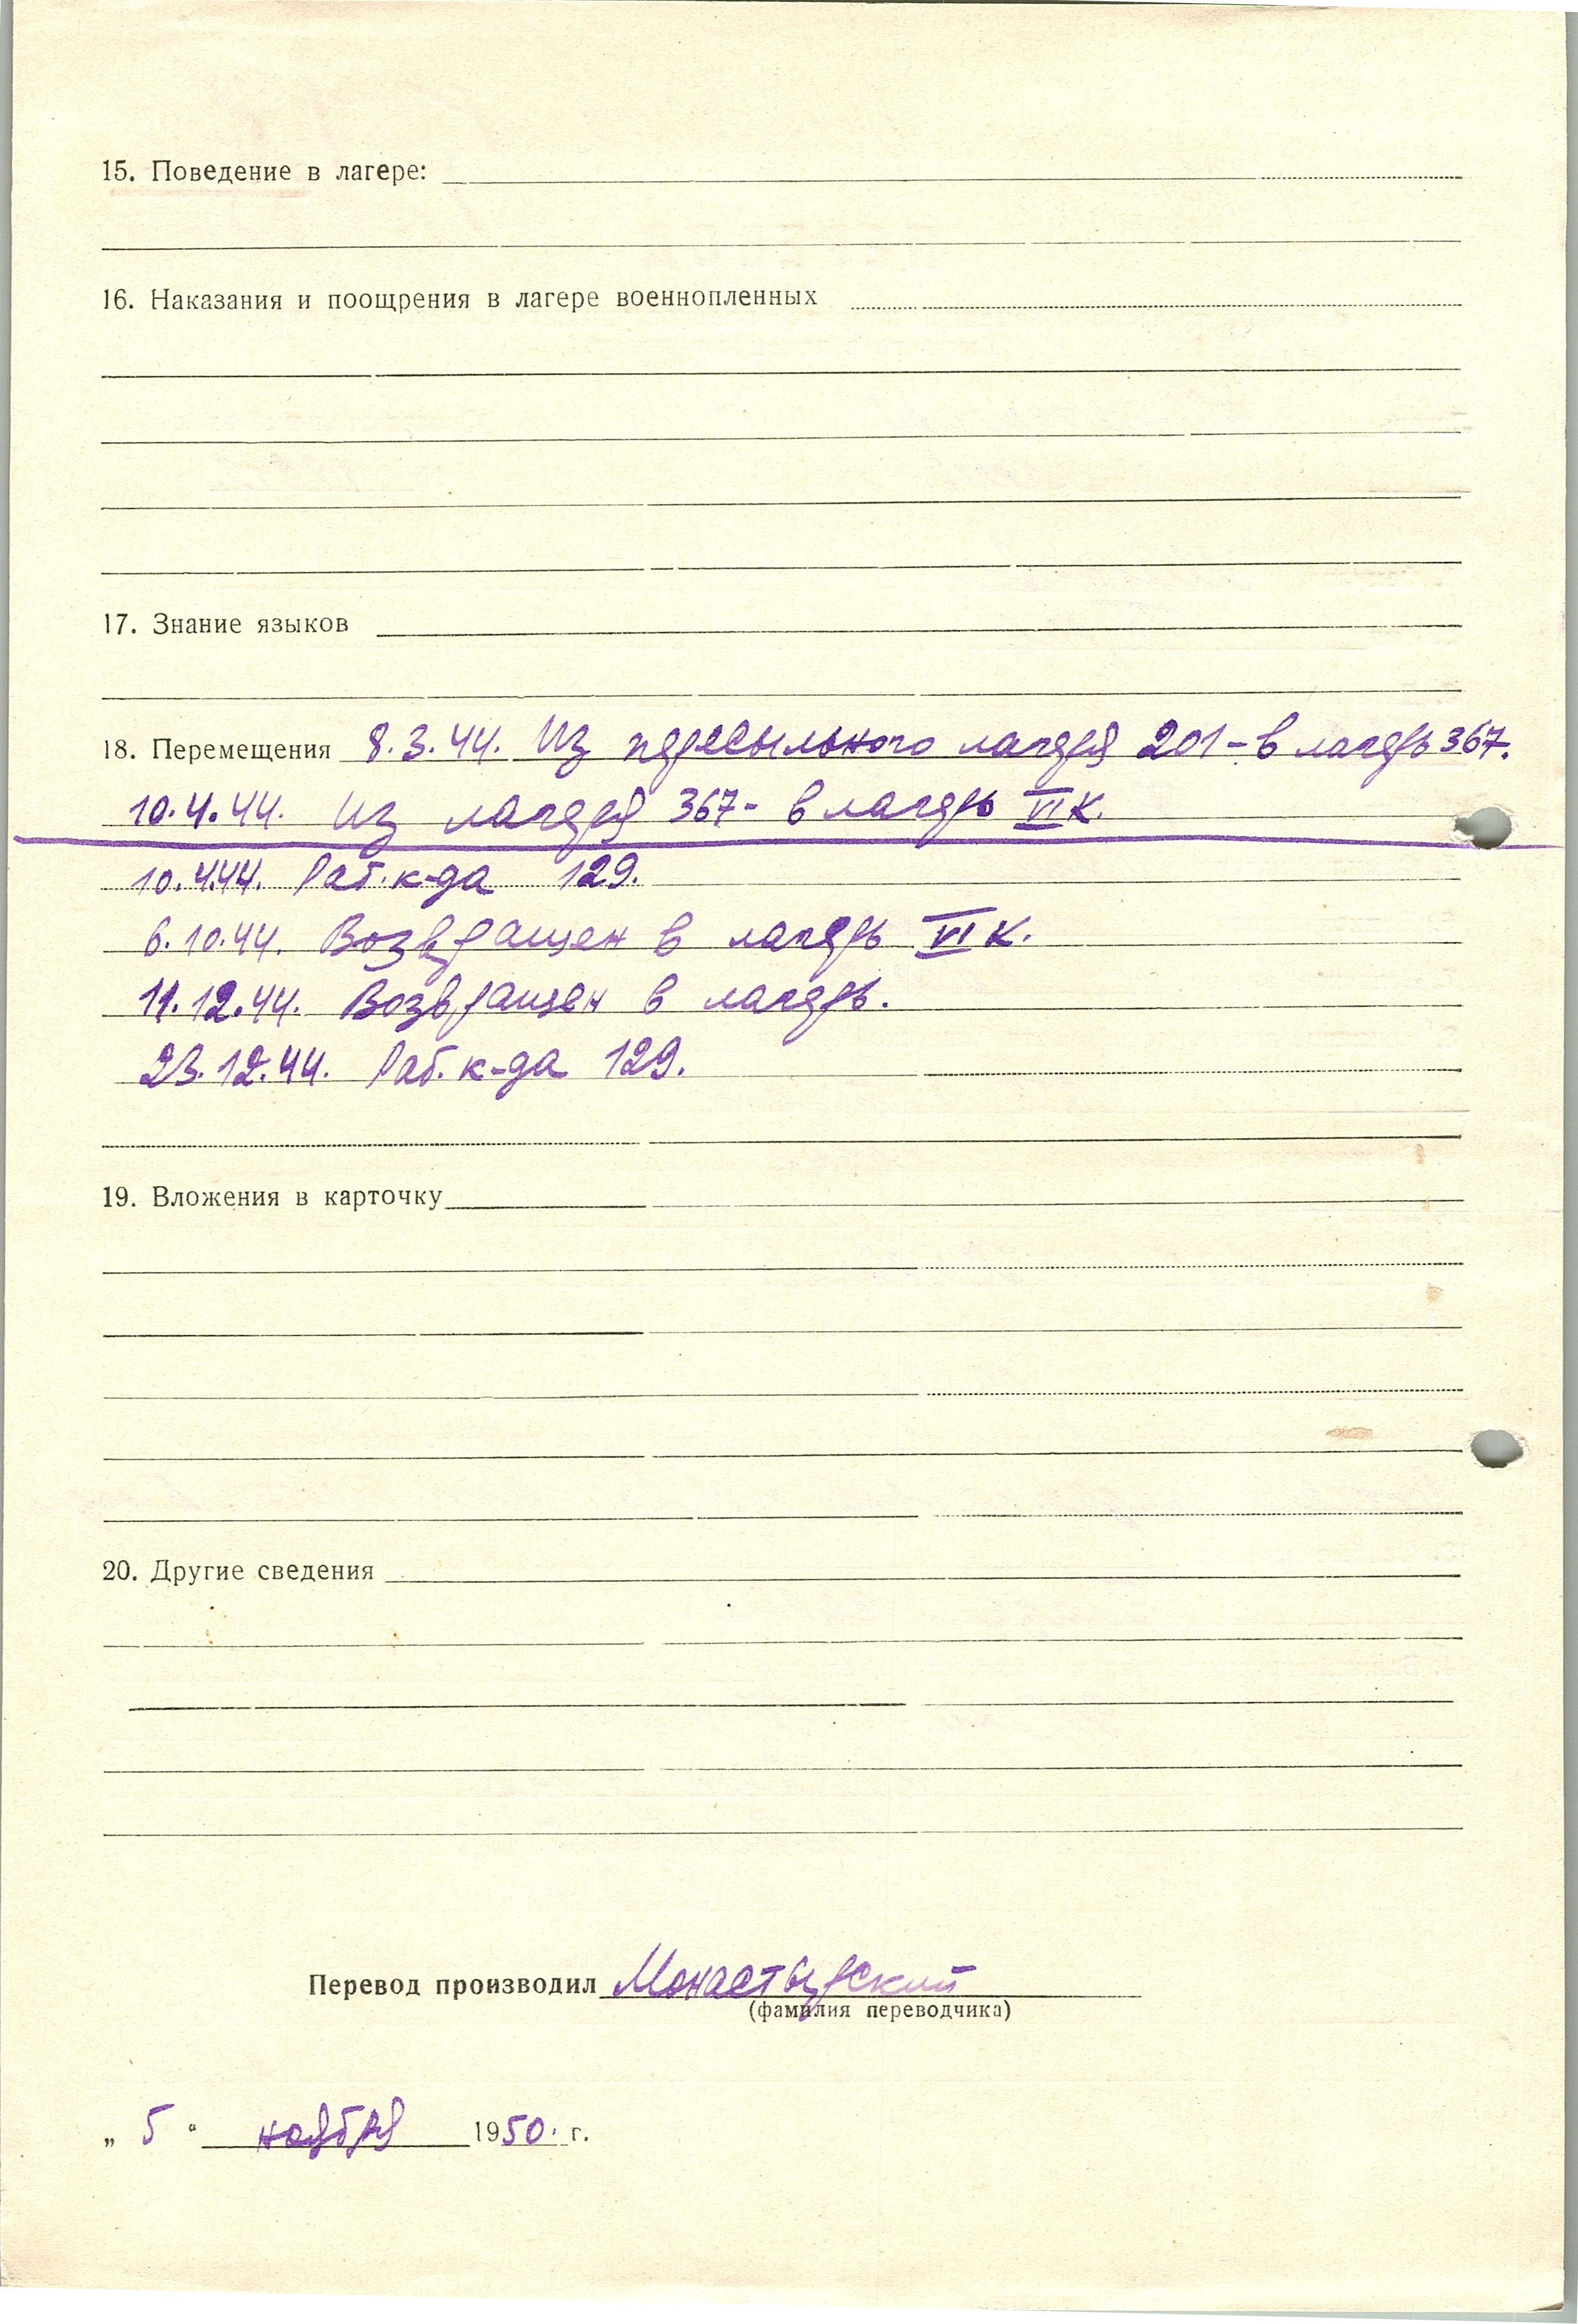 15. Поведение в лагере:
16. Наказания и поощрения в лагере военнопленных
17. Знание языков
18. Перемещения 8.3.44. Из пересыльного лагеря 201 – в лагерь 367.
10.4.44. Из лагеря 367 – в лагерь VI К.
10.4.44. Раб. к-да 129.
6.10.44. Возвращен в лагерь VI К.
11.12.44. Возвращен в лагерь.
23.12.44. Раб. к-да 129.
19. Вложения в карточку
20. Другие сведения
Перевод производил Монастырский
(фамилия переводчика)
„ 5 “ ноября 1950. г.